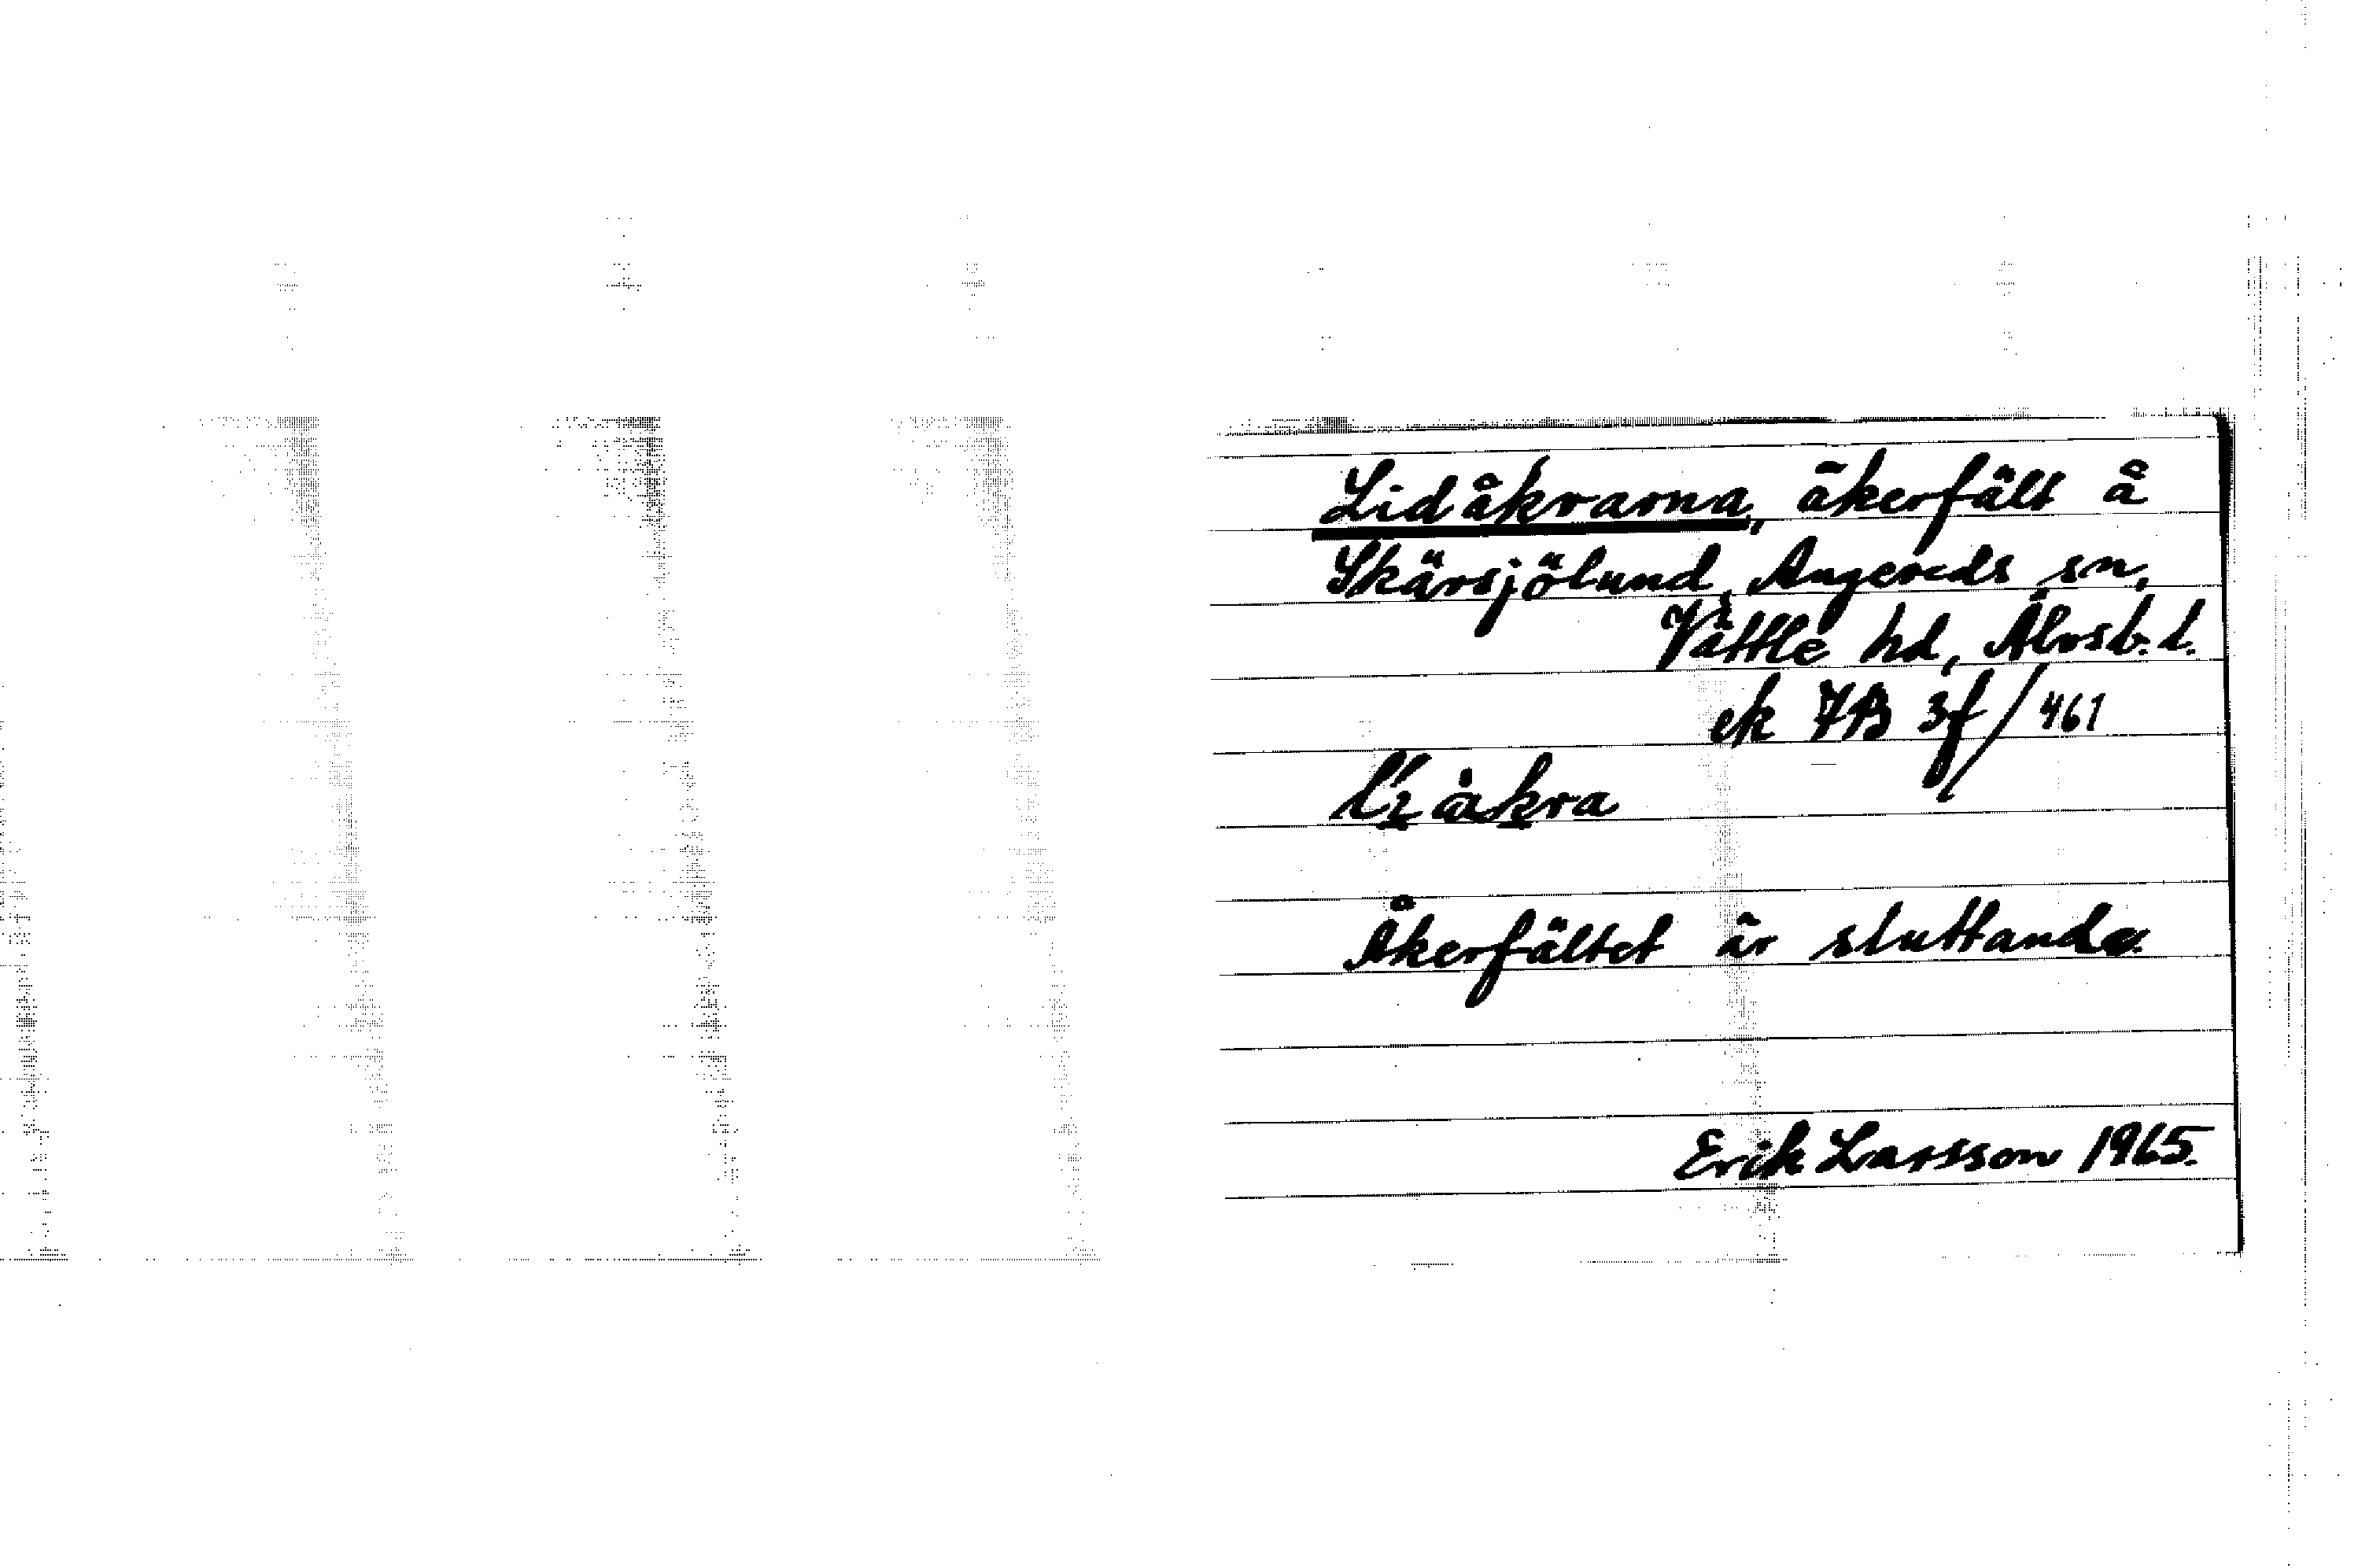 Lidåkrarna, åkerfält å
Skärsjölund, Angereds sn,
Vättle hd, Älvsb. l.
ek 7B 3f/461
åkra
Åkerfältet är sluttande.
Erik Larsson 1965.